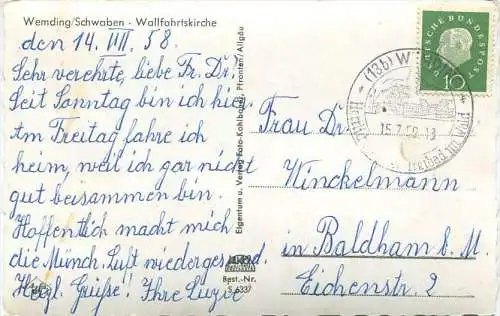 Wemding/Schwaben - Wallfahrtskirche
den 14. VII. 58.
Sehr verehrte, liebe Fr. Dr!
Seit Sonntag bin ich hier.
Am Freitag fahre ich
heim, weil ich gar nicht
gut beisammen bin.
Hoffentlich macht mich
die Münch. Luft wieder gesund.
Herzl. Grüße! Ihre Luzie
Eigentum u. Verlag Foto-Kohlbauer, Pfronten/Allgäu
Best.-Nr.
S 6337
DEUTSCHE BUNDESPOST
10
(13b) W
15.7.58-18
Frau Dr.
Winckelmann
in Baldham b. M.
Eichenstr. 2